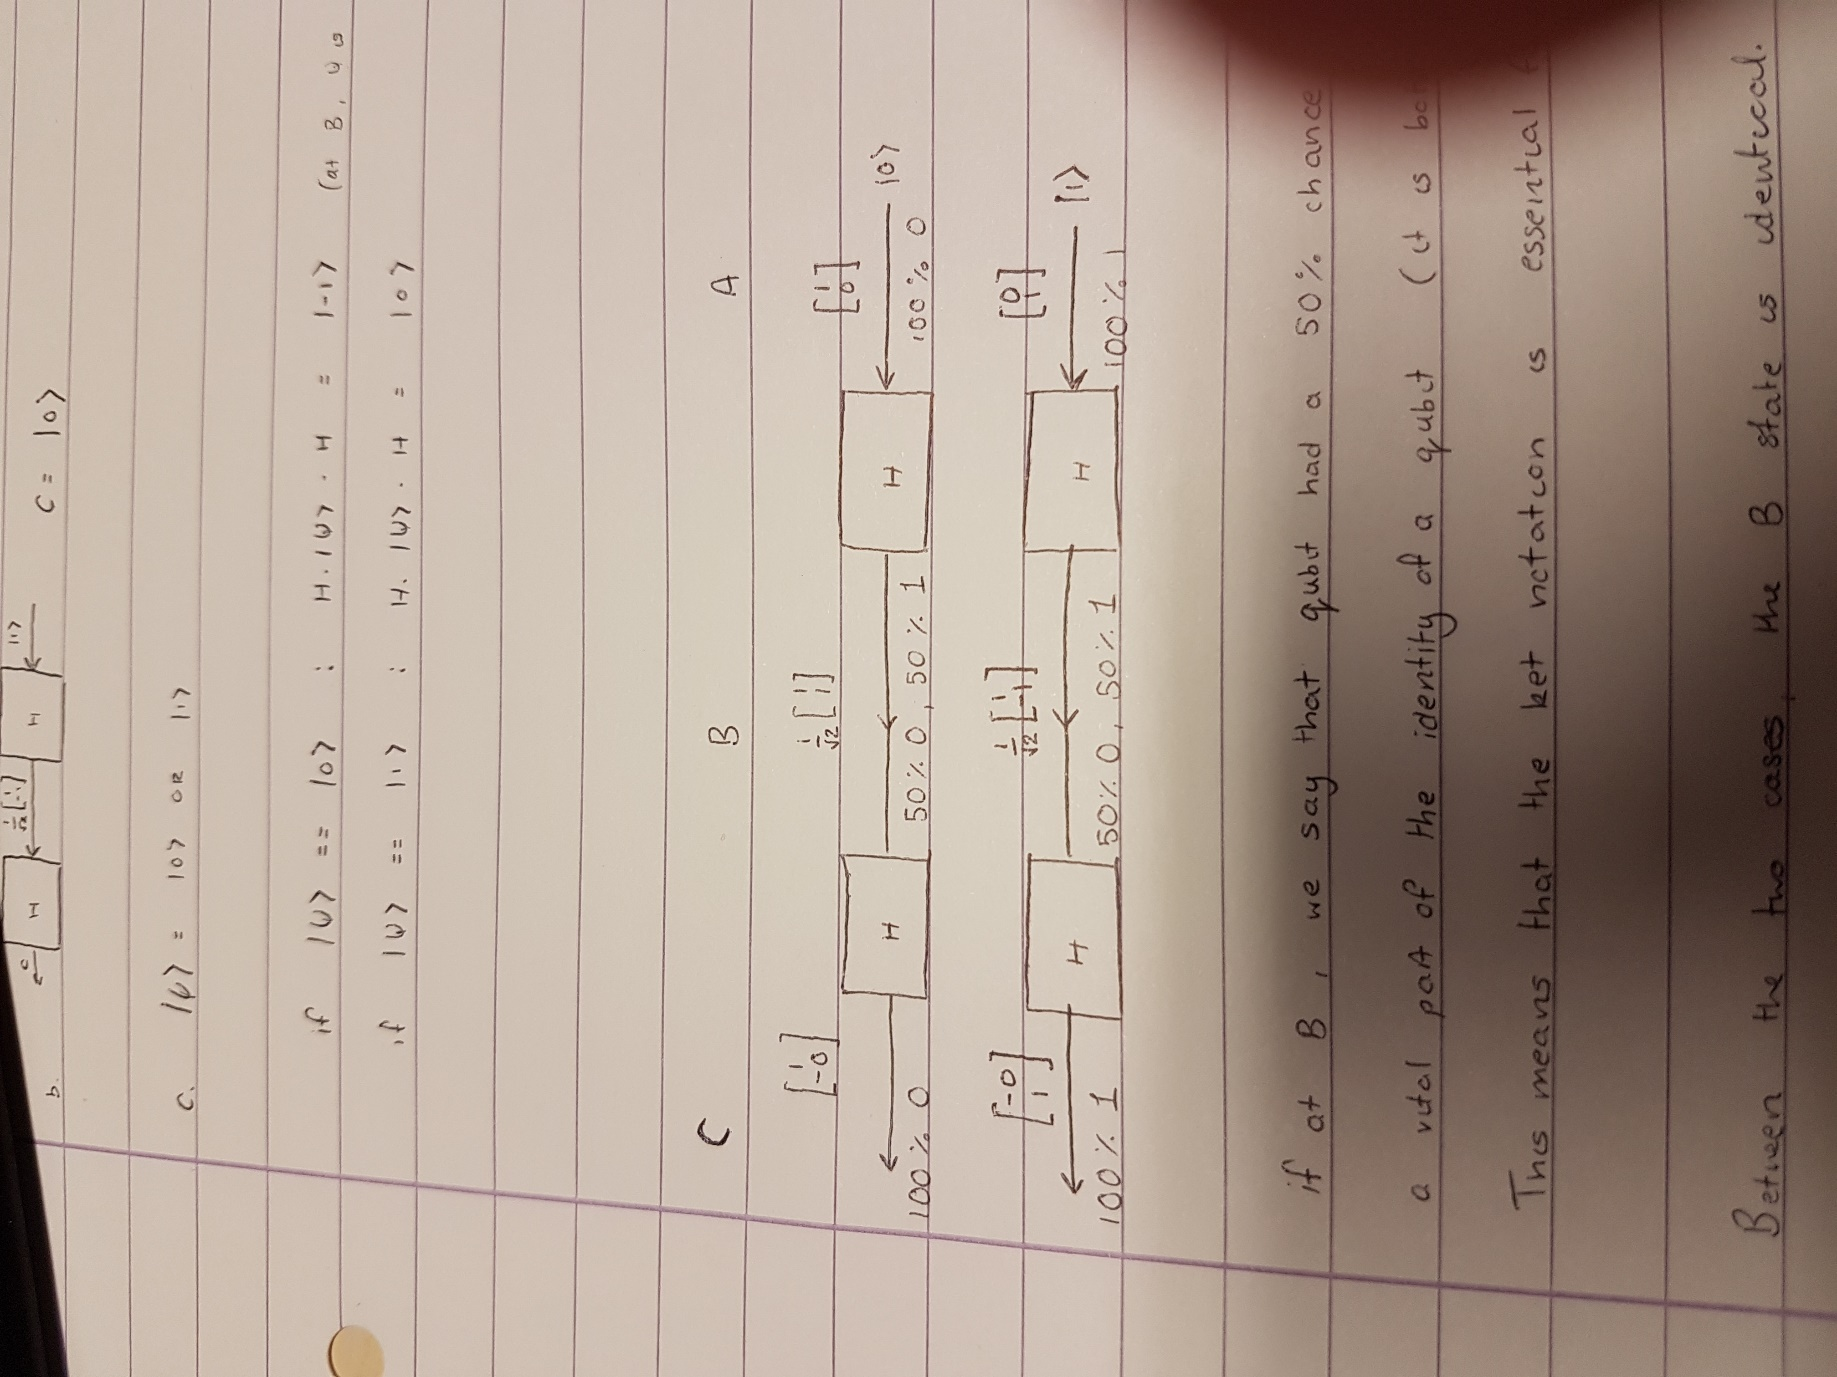 b. H 1/√2 [1 -1] H |1> C = |0>
c. |ψ> = |0> OR |1>
if |ψ> == |0> : H.|ψ>.H = |-1> (at B, ψ is
if |ψ> == |1> : H.|ψ>.H = |0>
C B A
[1 -0] 1/√2 [1 1] [1 0]
H H |0>
100% 0 50% 0, 50% 1 100% 0
[-0 1] 1/√2 [1 -1] [0 1]
H H |1>
100% 1 50% 0, 50% 1 100% 1
if at B, we say that qubit had a 50% chance
a vital part of the identity of a qubit (it is
This means that the ket notation is essential
Between the two cases, the B state is identical.